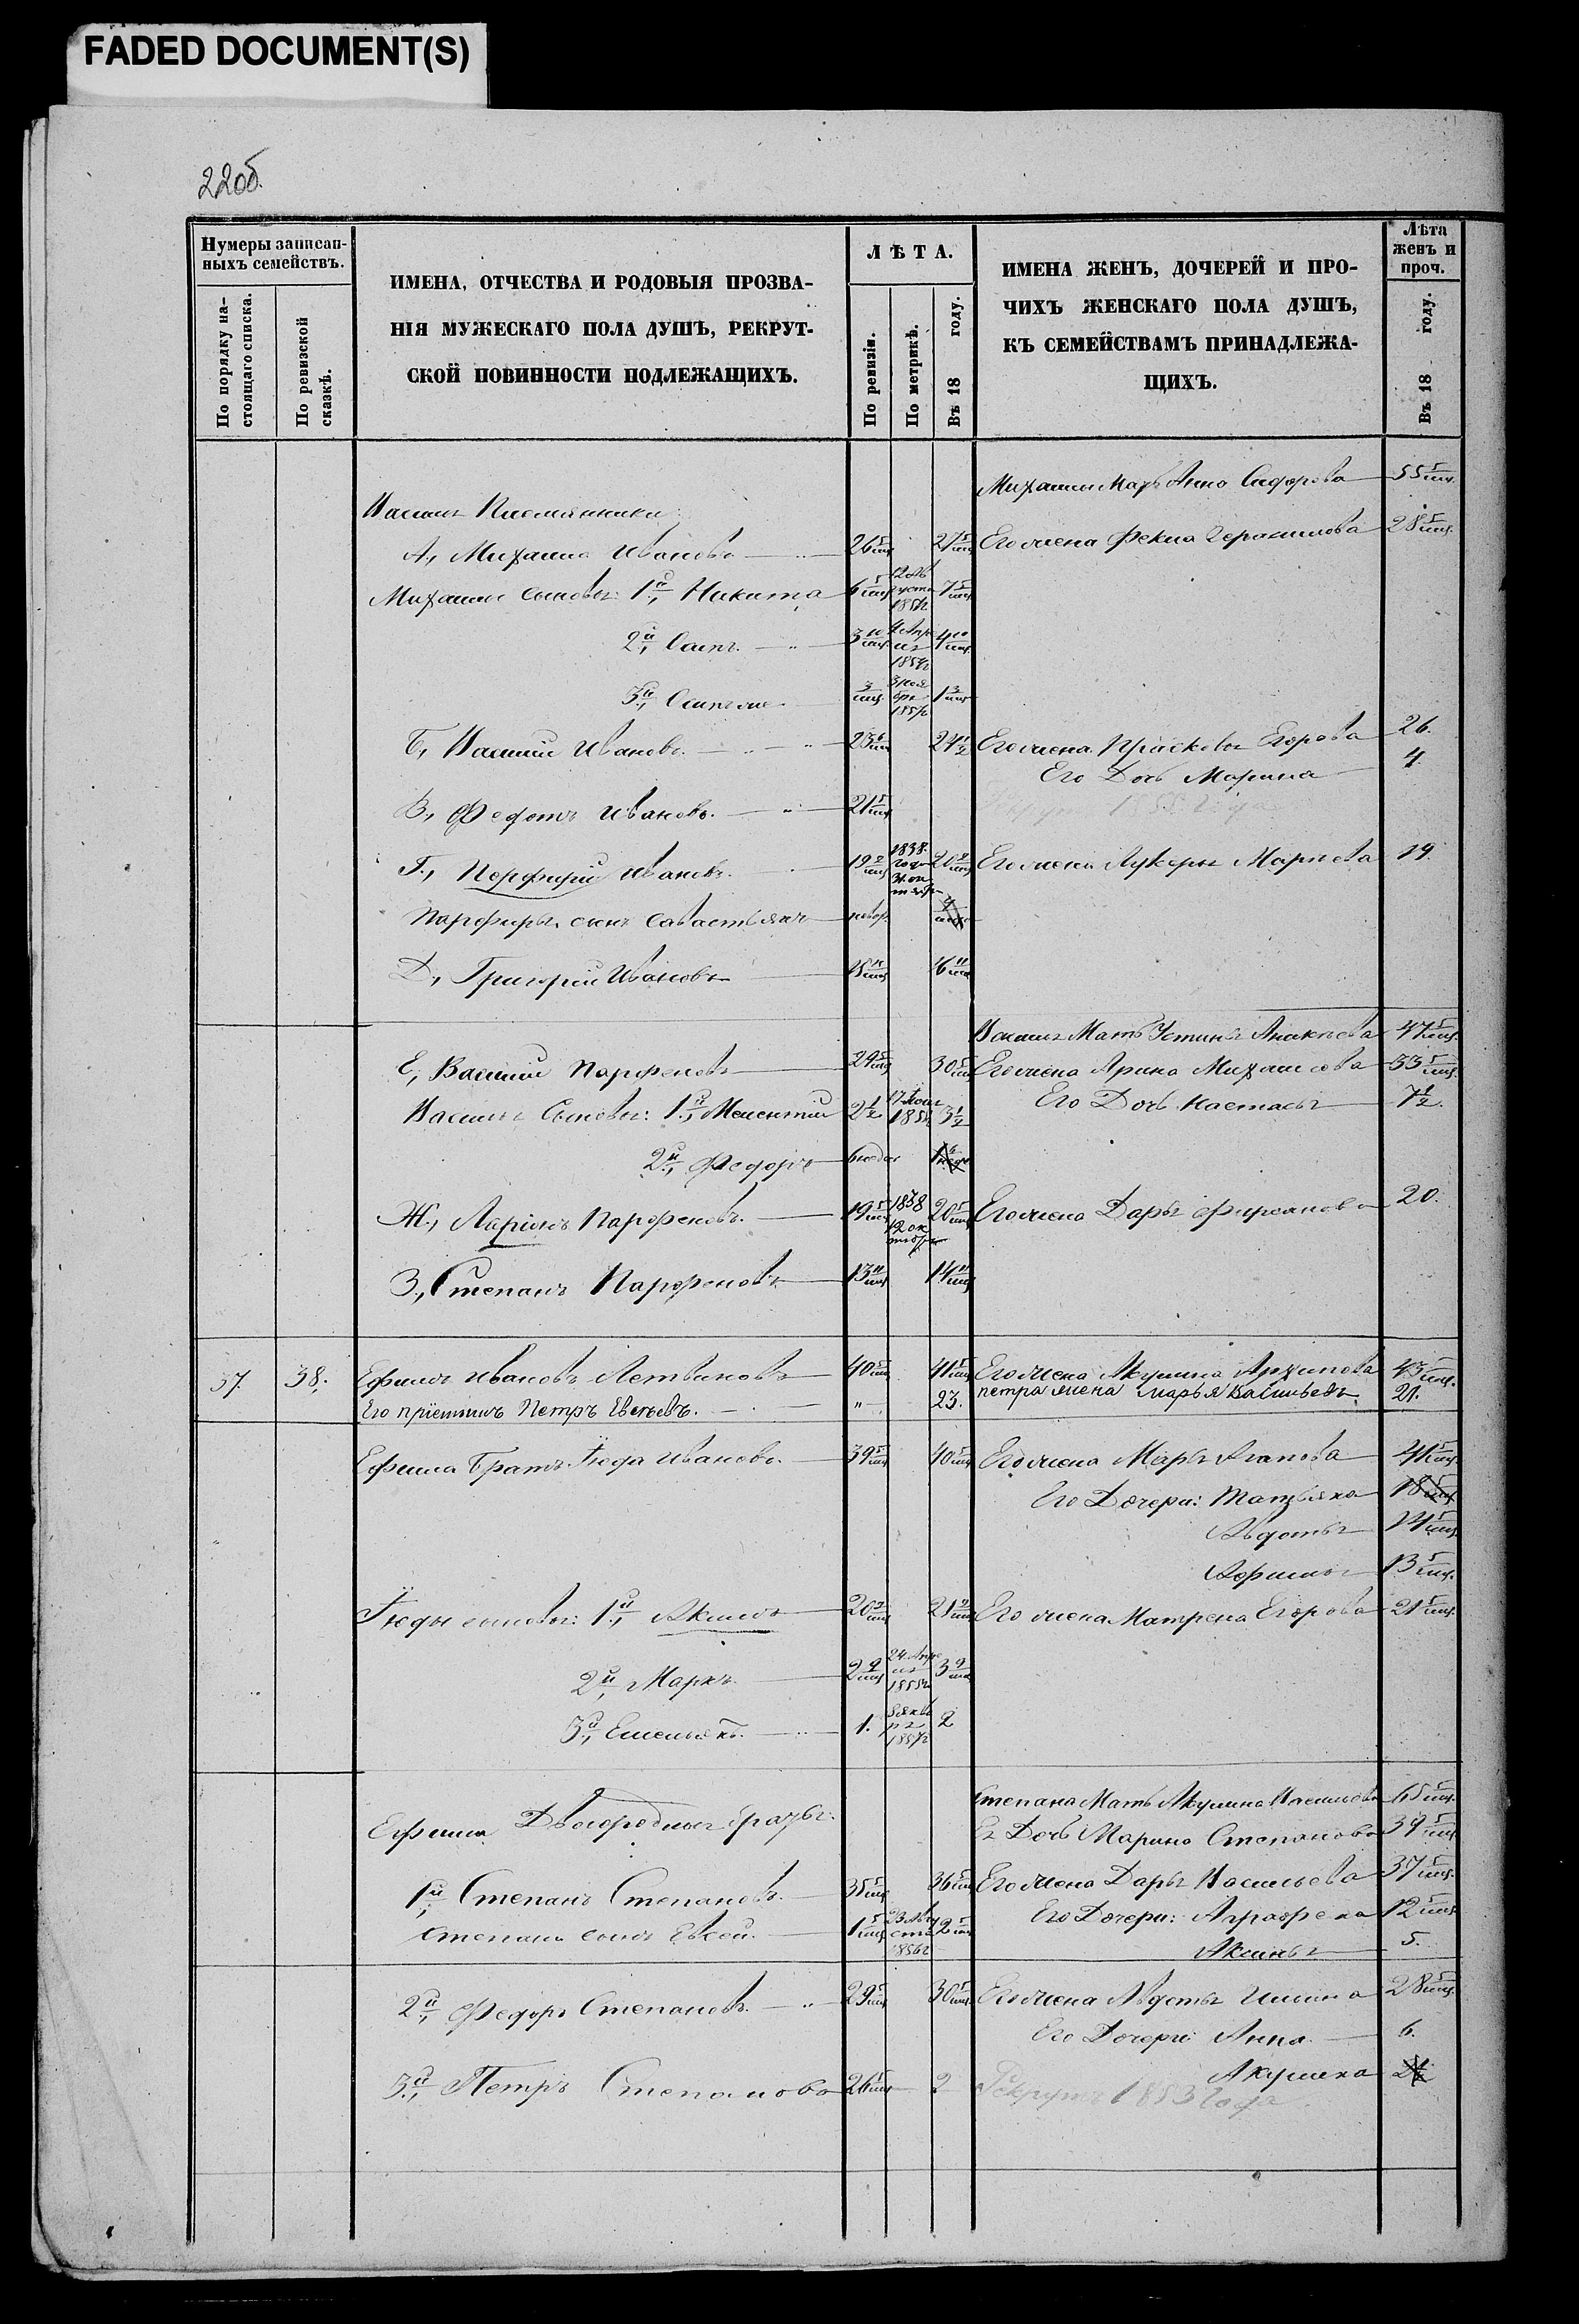 FADED DOCUMENT(S)
22об.
Нумеры записан-
ныхъ семействъ.
По порядку на-
стоящаго списка.
По ревизской
сказкѣ.
ИМЕНА, ОТЧЕСТВА И РОДОВЫЯ ПРОЗВА-
НІЯ МУЖЕСКАГО ПОЛА ДУШЪ, РЕКРУТ-
СКОЙ ПОВИННОСТИ ПОДЛЕЖАЩИХЪ.
ЛѢТА.
По ревизіи.
По метрикѣ.
Въ 18 году.
ИМЕНА ЖЕНЪ, ДОЧЕРЕЙ И ПРО-
ЧИХЪ ЖЕНСКАГО ПОЛА ДУШЪ,
КЪ СЕМЕЙСТВАМЪ ПРИНАДЛЕЖА-
ЩИХЪ.
Лѣта
женъ и
проч.
Въ 18 году.
Михаилы Мать Анна Сидорова 55 5/мц.
Василья Племянники:
А, Михаила Ивановъ 26 5/мц 27 5/мц Его жена Фекла Герасимова 28 5/мц.
Михаилы сыновья: 1й, Никита 6 5/мц 7 5/мц
2й, Осипъ 3 10/мц 4 Апреля 1854г 4 10/мц
3й, Осипъ же 3/мц 1 3/мц
Б, Василий Ивановъ 23 6/мц 24 1/2 Его жена Прасковья Егорова 26.
Его Дочь Марина 4
В, Федотъ Ивановъ 21 5/мц 1855 года
Г, Перфирий Ивановъ 19 2/мц 1838. года 31 октября 20 2/мц Его жена Лукерья Маркова 19.
Парфирья сынъ Савастьянъ новор.
Д, Григорий Ивановъ 15 11/мц 16 11/мц
Василья Мать Устинья 47 5/мц.
Е, Василий Парфеновъ 29 5/мц 30 5/мц Его жена Арина Михайлова 33 5/мц.
Василья Сыновья: 1й, Мелентий 2 1/2 3 1/2 Его Дочь Настасья 7 1/2.
2й, Федоръ 6 недел
Ж, Ларіонъ Парфеновъ 19 5/мц 1838 12 октября 20 5/мц Его жена Дарья Фирсанова 20.
З, Степанъ Парфеновъ 13 11/мц 14 11/мц
37. 38. Ефимъ Ивановъ Летвиновъ 40 5/мц 41 5/мц Его жена Акулина Архипова 43 5/мц.
Его приемышъ Петръ Евсеевъ. " 23. петра жена марья Васильевъ 21.
Ефима Братъ Гюда Ивановъ 39 5/мц 40 5/мц Его жена Марья Агапова 41 5/мц.
Его Дочери: Татьяна 18 5/мц
Авдотья 14 5/мц.
Афимья 13 5/мц.
Гюды сыновья: 1й, Акимъ Его жена Матрена Егорова 21 5/мц.
2й, Маркъ 2 9/мц 24 Апреля 1855г 3 9/мц
3й, Емельянъ 1. 2
Степана Мать Акулина 65 5/мц.
Ефима Двоюродныя братья: Ея Дочь Марина Степанова 39 5/мц
1й, Степанъ Степановъ 35 5/мц 36 5/мц Его жена Дарья Васильева 37 5/мц.
Степана сынъ Евсей 1 5/мц 1856г 2 5/мц Его Дочери: Аграфена 12 5/мц
Аксинья 5.
2й, Федоръ Степановъ 29 5/мц 30 5/мц. Его жена Авдотья 28 5/мц.
Его Дочери Анна 6.
Акулина
3й, Петръ Степановъ 26 5/мц 2 Рекрутъ 1853 года.